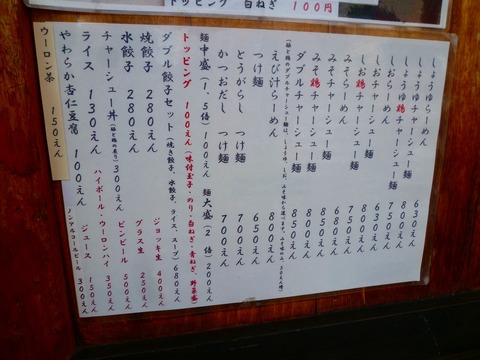 トッピング 白ねぎ 100円
しょうゆらーめん 630えん
しょうゆチャーシュー麺
しょうゆ鶏チャーシュー麺
しおらーめん 630えん
しおチャーシュー麺
しお鶏チャーシュー麺 750えん
みそらーめん 680えん
みそチャーシュー麺
みそ鶏チャーシュー麺
ダブルチャーシュー麺 850えん
えび汁らーめん 800えん
つけ麺 650えん
とうがらし つけ麺 700えん
かつおだし つけ麺 700えん
麺中盛(1、5倍)100えん 麺大盛(2倍)200えん
トッピング 100えん(味付玉子・のり・白ねぎ・青ねぎ、野菜盛)
ダブル餃子セット(焼き餃子、水餃子、ライス、スープ)680えん
焼餃子 280えん ジョッキ生 400えん
水餃子 280えん グラス生 250えん
チャーシュー丼(豚と鶏の炙り)300えん ビンビール 500えん
ライス 130えん ハイボール・ウーロンハイ 350えん
やわらか杏仁豆腐 100えん ジュース 150えん
ノンアルコールビール 300えん
ウーロン茶 150えん